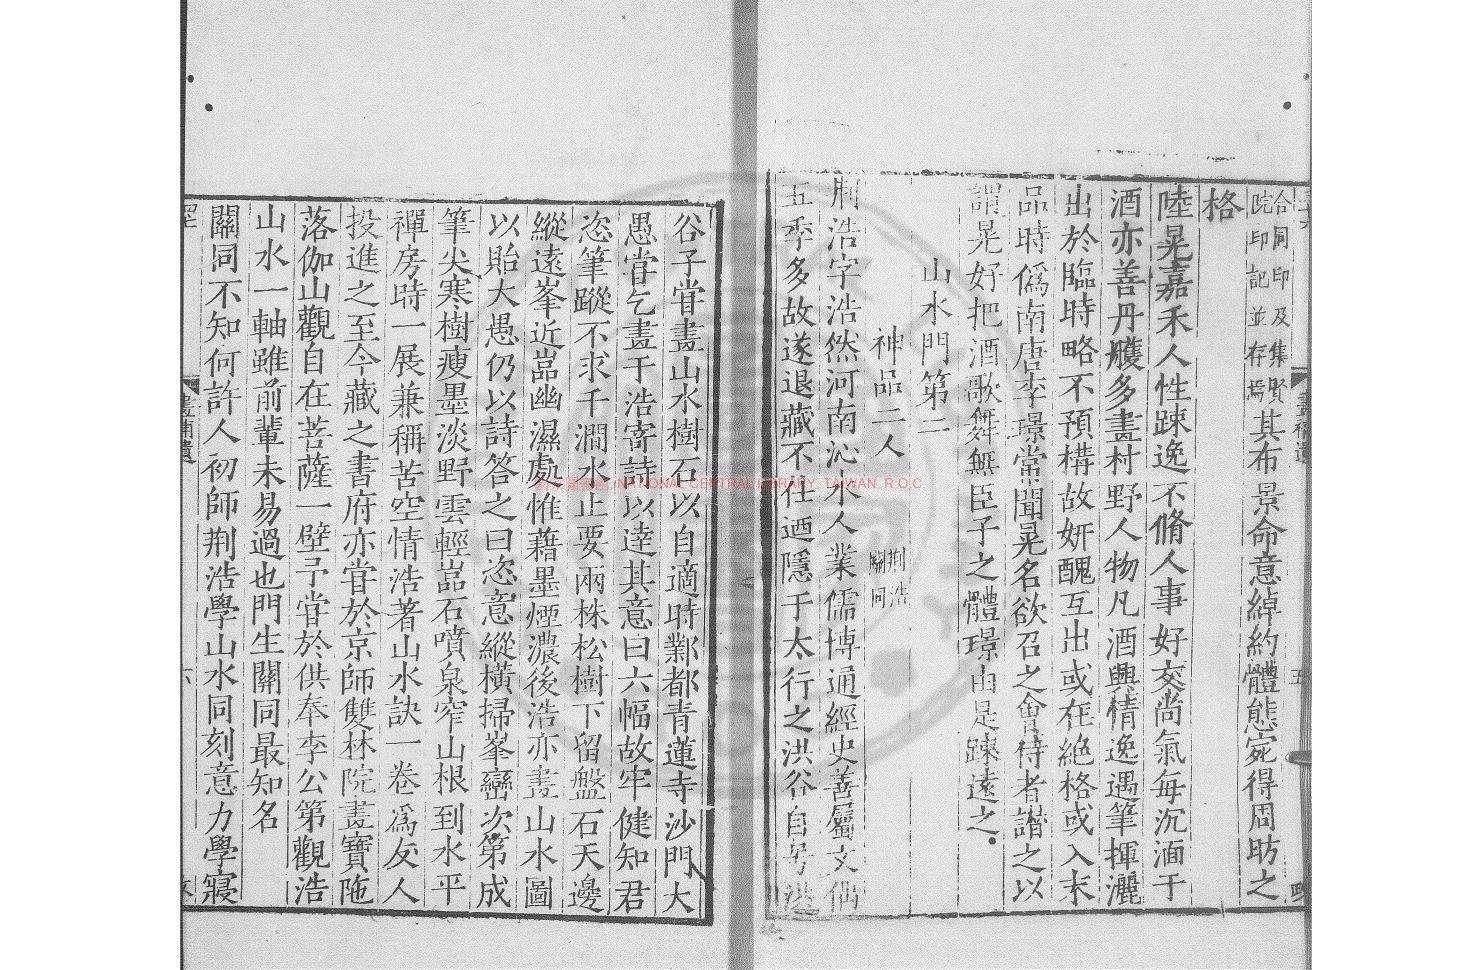 合同印及集賢
院印記並存焉其布景命意綽約體態宛得周昉之
格
陸晃嘉禾人性踈逸不脩人事好交尚氣每沉湎于
酒亦善丹雘多畫村野人物凡酒興情逸遇筆揮灑
出於臨時略不預構故妍醜互出或在絶格或入末
品時僞南唐李璟常聞晃名欲召之會侍者譖之以
謂晃好把酒歌舞無臣子之體璟由是踈遠之
山水門第二
神品二人 荆浩 關同
荆浩字浩然河南沁水人業儒博通經史善屬文偶
五季多故遂退藏不仕迺隱于太行之洪谷自号洪
谷子甞畫山水樹石以自適時鄴都青蓮寺沙門大
愚甞乞畫于浩寄詩以達其意曰六幅故牢健知君
恣筆蹤不求千澗水止要兩株松樹下留盤石天邊
縱遠峯近嵓幽濕處惟藉墨煙濃後浩亦畫山水圖
以貽大愚仍以詩答之曰恣意縱橫掃峯巒次第成
筆尖寒樹瘦墨淡野雲輕嵓石噴泉窄山根到水平
禪房時一展兼稱苦空情浩著山水訣一卷爲友人
投進之至今藏之書府亦甞於京師雙林院畫寶陁
落伽山觀自在菩薩一壁予甞於供奉李公第觀浩
山水一軸雖前輩未易過也門生關同最知名
關同不知何許人初師荆浩學山水同刻意力學寢
國立中央圖書館 NATIONAL CENTRAL LIBRARY, TAIWAN, R.O.C